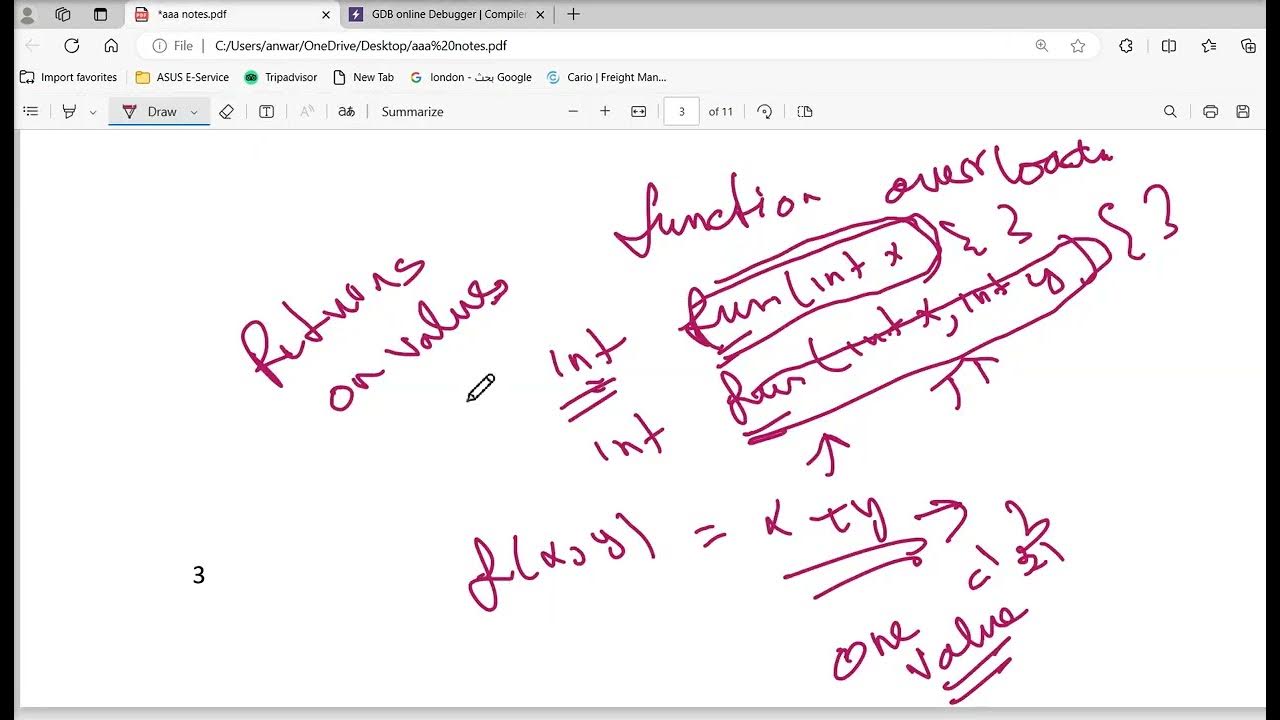 *aaa notes.pdf
GDB online Debugger | Compiler
File
C:/Users/anwar/OneDrive/Desktop/aaa%20notes.pdf
Import favorites
ASUS E-Service
Tripadvisor
New Tab
london - بحث Google
Cario | Freight Man...
Draw
aあ
Summarize
3
of 11
function
Returns
on values
int fun(int x) { }
int fun(int x, int y) { }
f(x, y) = x + y →
one
value
3